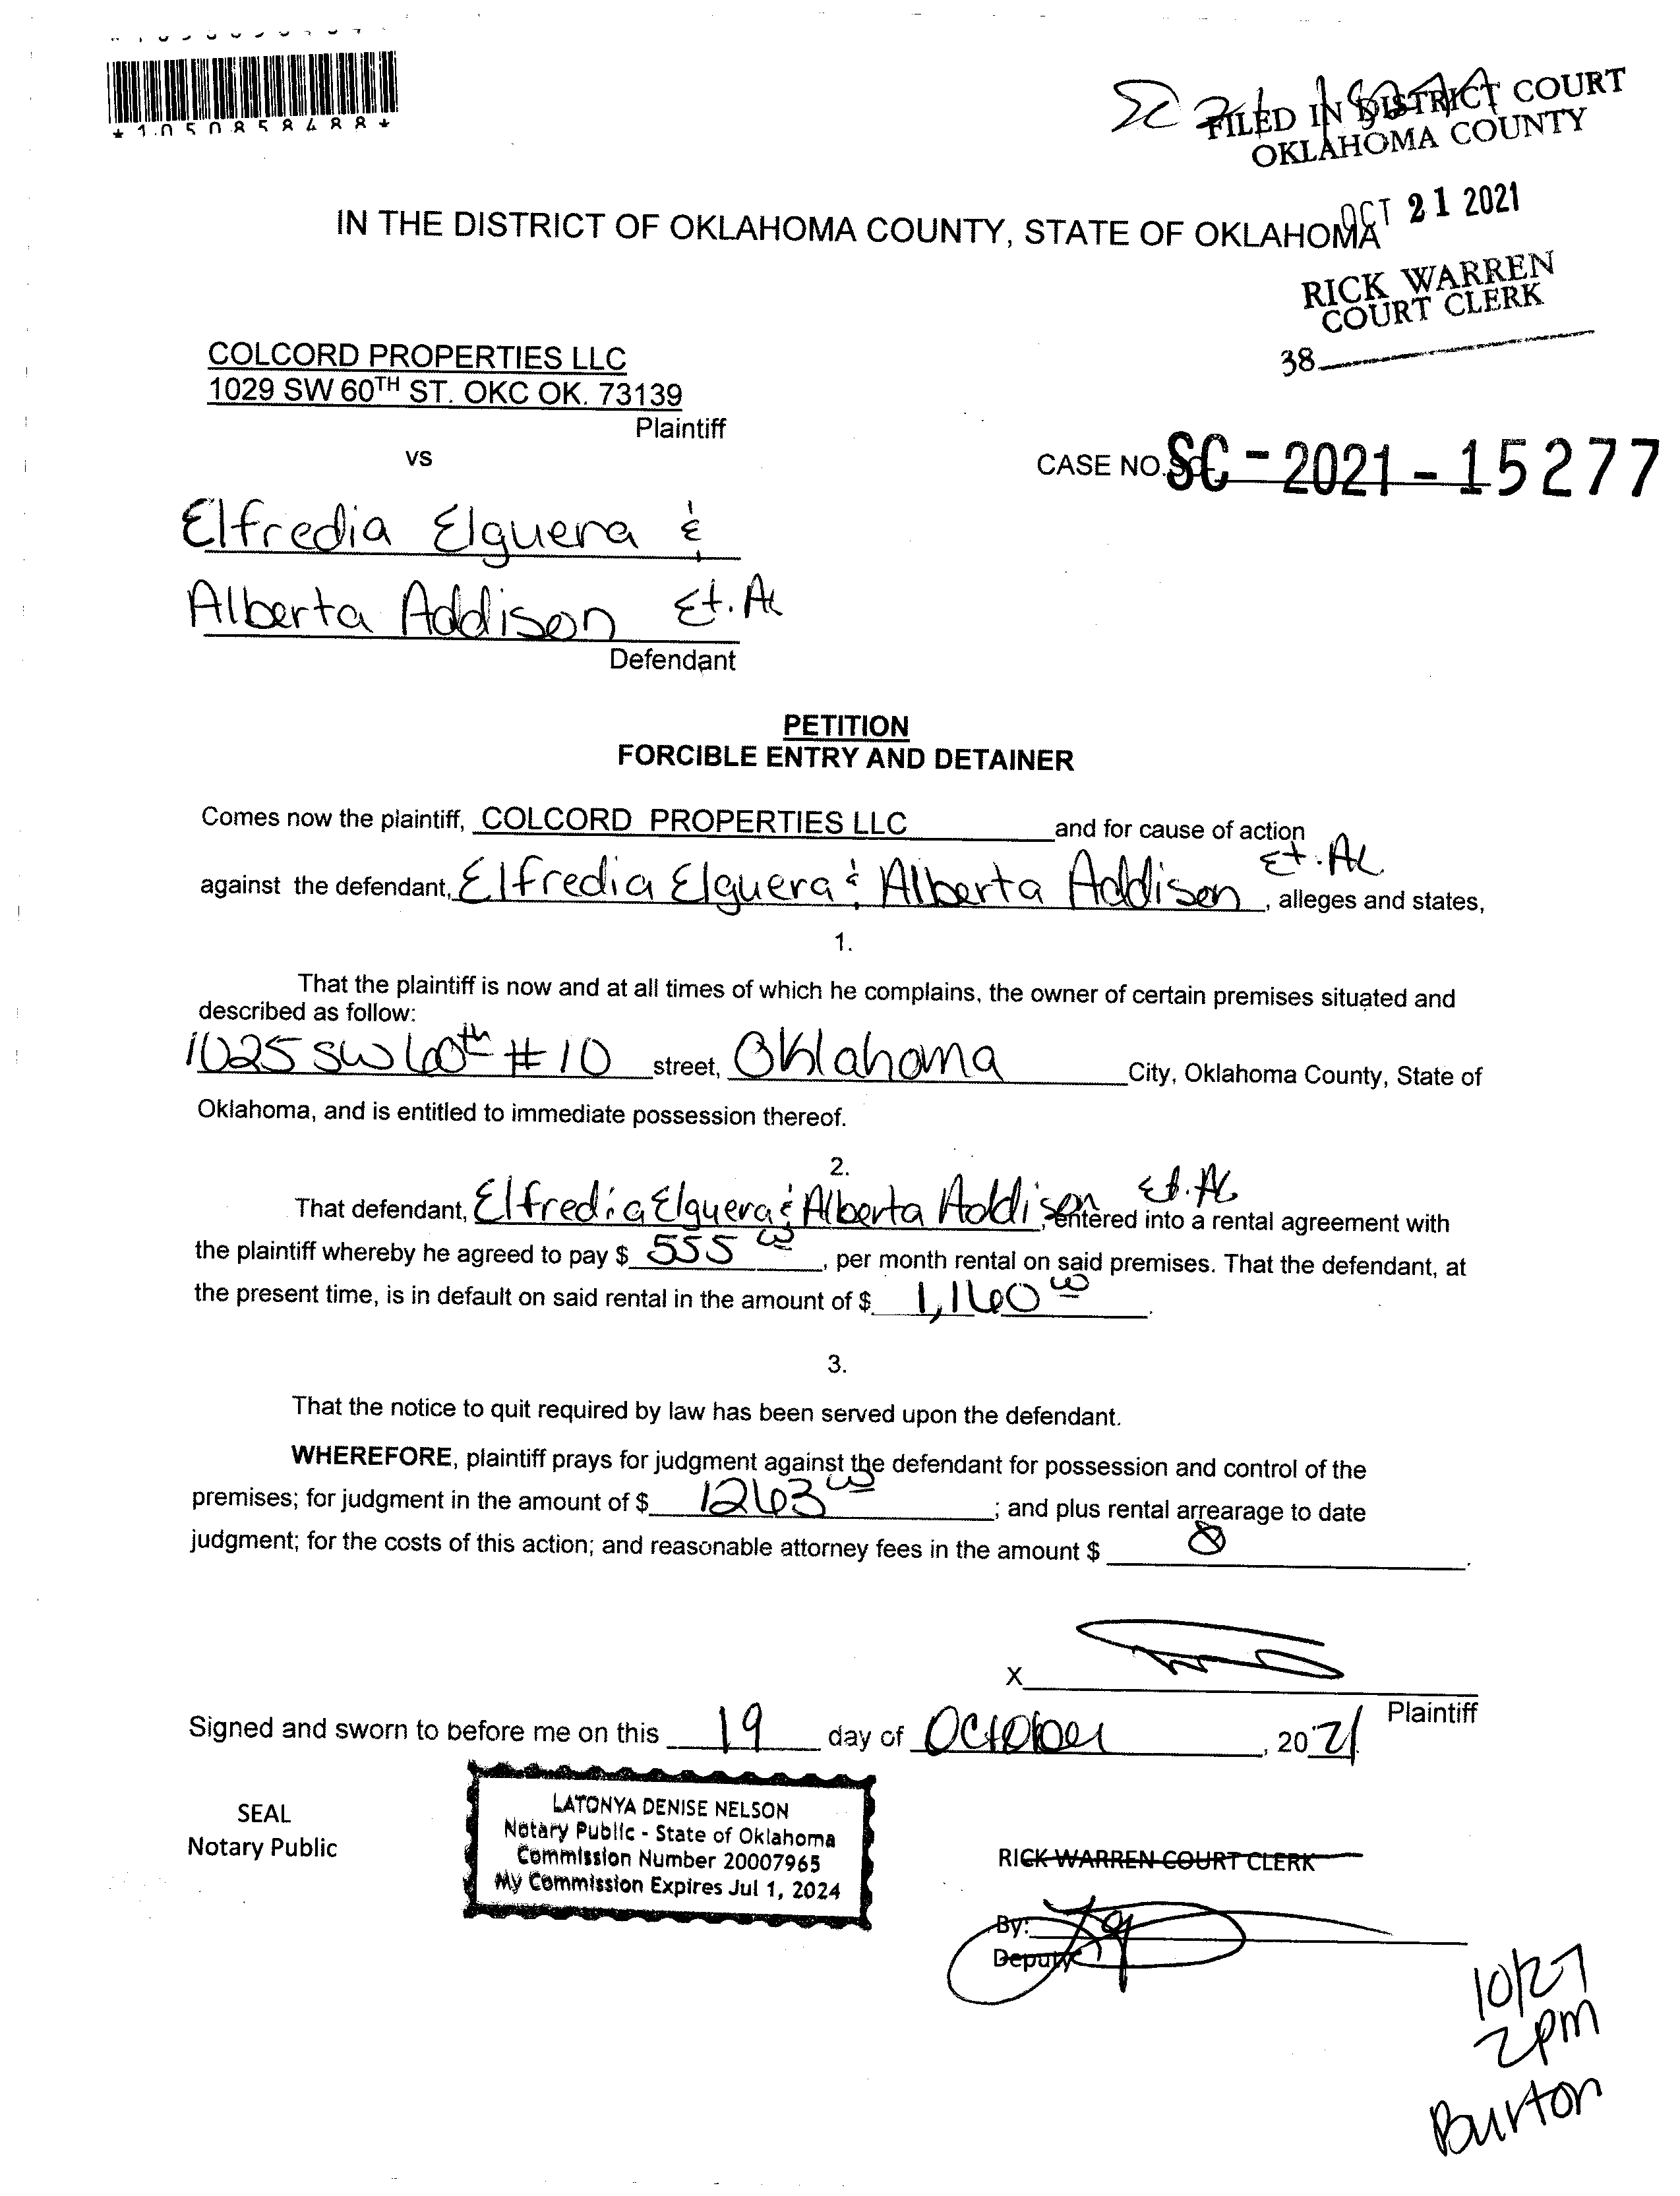 *1050858488*
FILED IN DISTRICT COURT
OKLAHOMA COUNTY
OCT 21 2021
RICK WARREN
COURT CLERK
38
IN THE DISTRICT OF OKLAHOMA COUNTY, STATE OF OKLAHOMA
COLCORD PROPERTIES LLC
1029 SW 60TH ST. OKC OK. 73139
Plaintiff
vs
CASE NO. SC-2021-15277
Elfredia Elguera &
Alberta Addison Et. Al
Defendant
PETITION
FORCIBLE ENTRY AND DETAINER
Comes now the plaintiff, COLCORD PROPERTIES LLC and for cause of action
against the defendant, Elfredia Elguera & Alberta Addison Et. Al, alleges and states,
1.
That the plaintiff is now and at all times of which he complains, the owner of certain premises situated and
described as follow:
1025 SW 60th #10 street, Oklahoma City, Oklahoma County, State of
Oklahoma, and is entitled to immediate possession thereof.
2.
That defendant, Elfredia Elguera & Alberta Addison Et. Al, entered into a rental agreement with
the plaintiff whereby he agreed to pay $ 555 00, per month rental on said premises. That the defendant, at
the present time, is in default on said rental in the amount of $ 1,160 00.
3.
That the notice to quit required by law has been served upon the defendant.
WHEREFORE, plaintiff prays for judgment against the defendant for possession and control of the
premises; for judgment in the amount of $ 1263 00; and plus rental arrearage to date
judgment; for the costs of this action; and reasonable attorney fees in the amount $
X
Plaintiff
Signed and sworn to before me on this 19 day of October, 2021
SEAL
Notary Public
LATONYA DENISE NELSON
Notary Public - State of Oklahoma
Commission Number 20007965
My Commission Expires Jul 1, 2024
RICK WARREN COURT CLERK
By:
Deputy
10/27
2pm
Burton